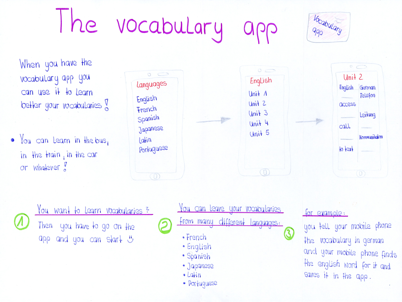 The vocabulary app
Vocabulary
app
When you have the
vocabulary app you
can use it to learn
better your vocabularies!
• You can learn in the bus,
in the train, in the car
or whatever!
Languages
English
French
Spanish
Japanese
Latin
Portuguese
English
Unit 1
Unit 2
Unit 3
Unit 4
Unit 5
Unit 2
English German
access
call
to text
1 You want to learn vocabularies?
Then you have to go on the
app and you can start :)
2 You can learn your vocabularies
from many different languages:
• French
• English
• Spanish
• Japanese
• Latin
• Portuguese
3 for example:
you tell your mobile phone
the vocabulary in german
and your mobile phone finds
the english word for it and
saves it in the app.